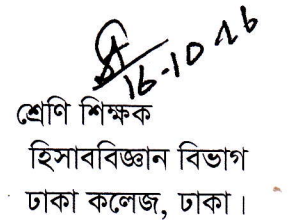 16-10-16
শ্রেণি শিক্ষক
হিসাববিজ্ঞান বিভাগ
ঢাকা কলেজ, ঢাকা।